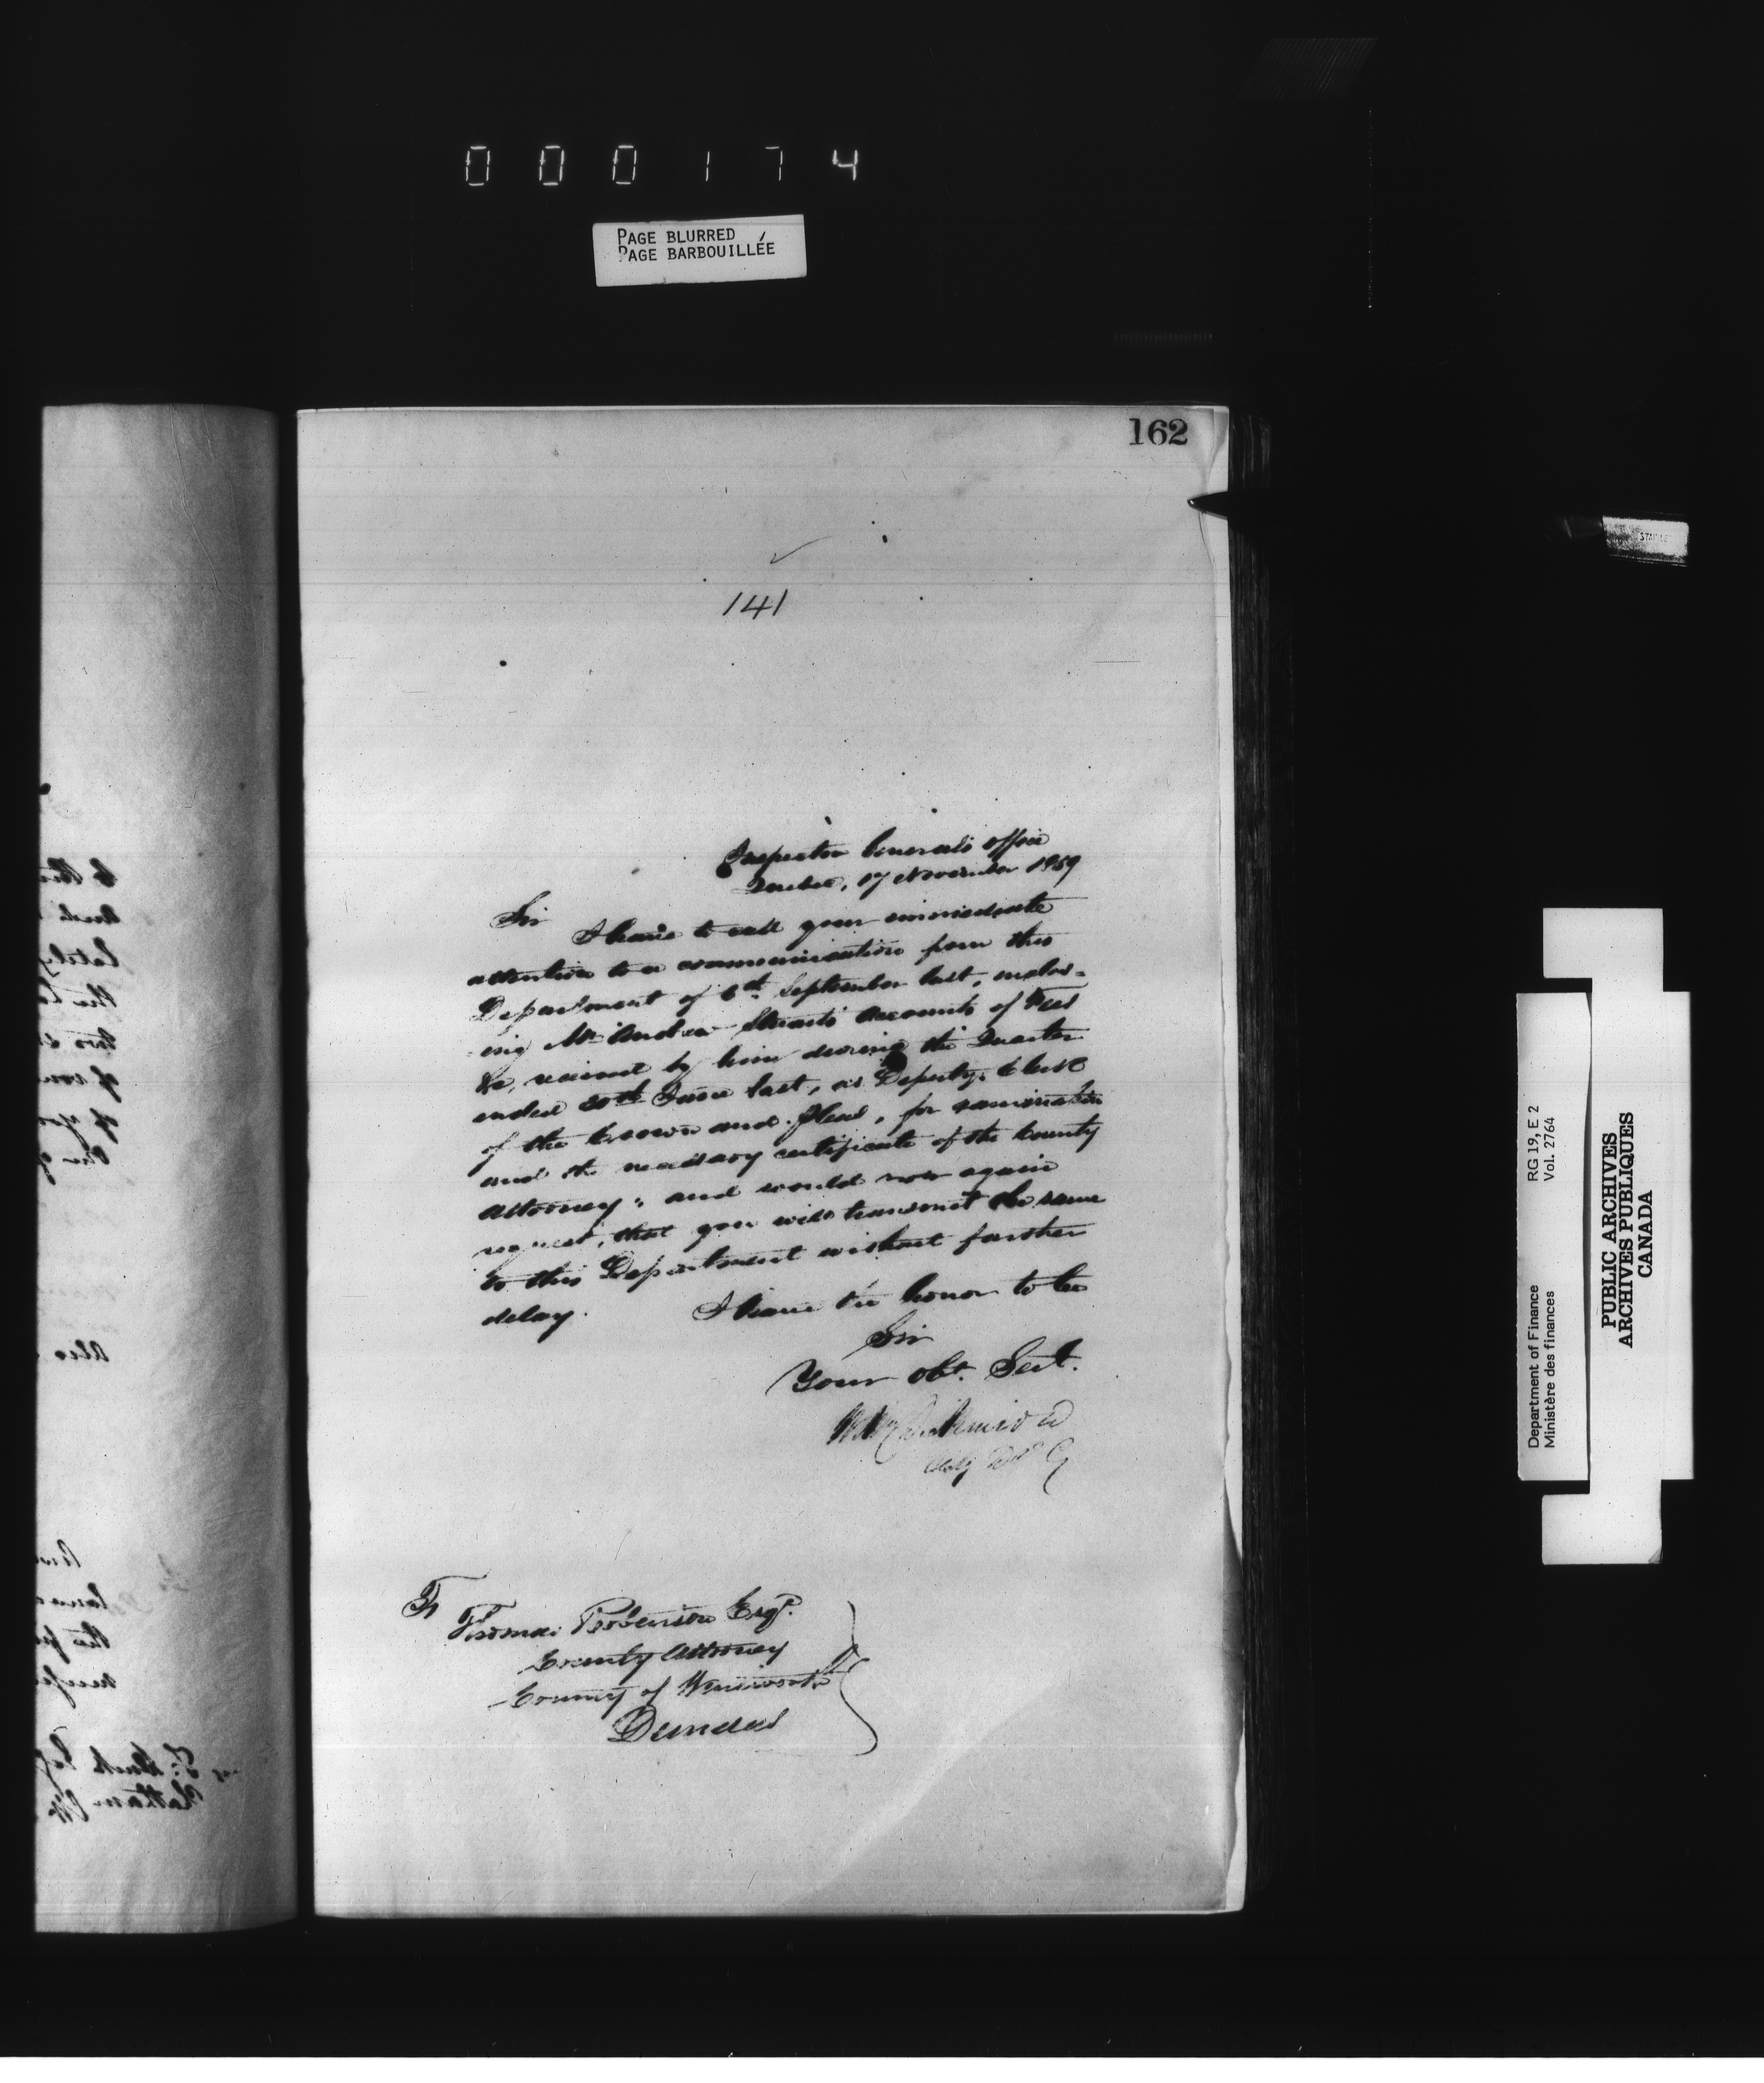 000174
PAGE BLURRED
PAGE BARBOUILLÉE
162
141
Inspector Generals Office
Quebec, 17 November 1859
Sir
I have to call your immediate
attention to a communication from this
Department of 6th September last, enclos=
ing Mr Andrew Stuarts Accounts of Fees
&c, received by him during the Quarter
ended 30th June last, as Deputy Clerk
of the Crown and Pleas, for examination
and the necessary certificate of the County
Attorney; and would now again
request, that you will transmit the same
to this Department without further
delay.
I have the honor to be
Sir
Your obt. Servt.
Thomas Robertson Esqr.
County Attorney
County of Wentworth
Dundas
STAPLE
RG 19, E 2
Vol. 2764
Department of Finance
Ministère des finances
PUBLIC ARCHIVES
ARCHIVES PUBLIQUES
CANADA